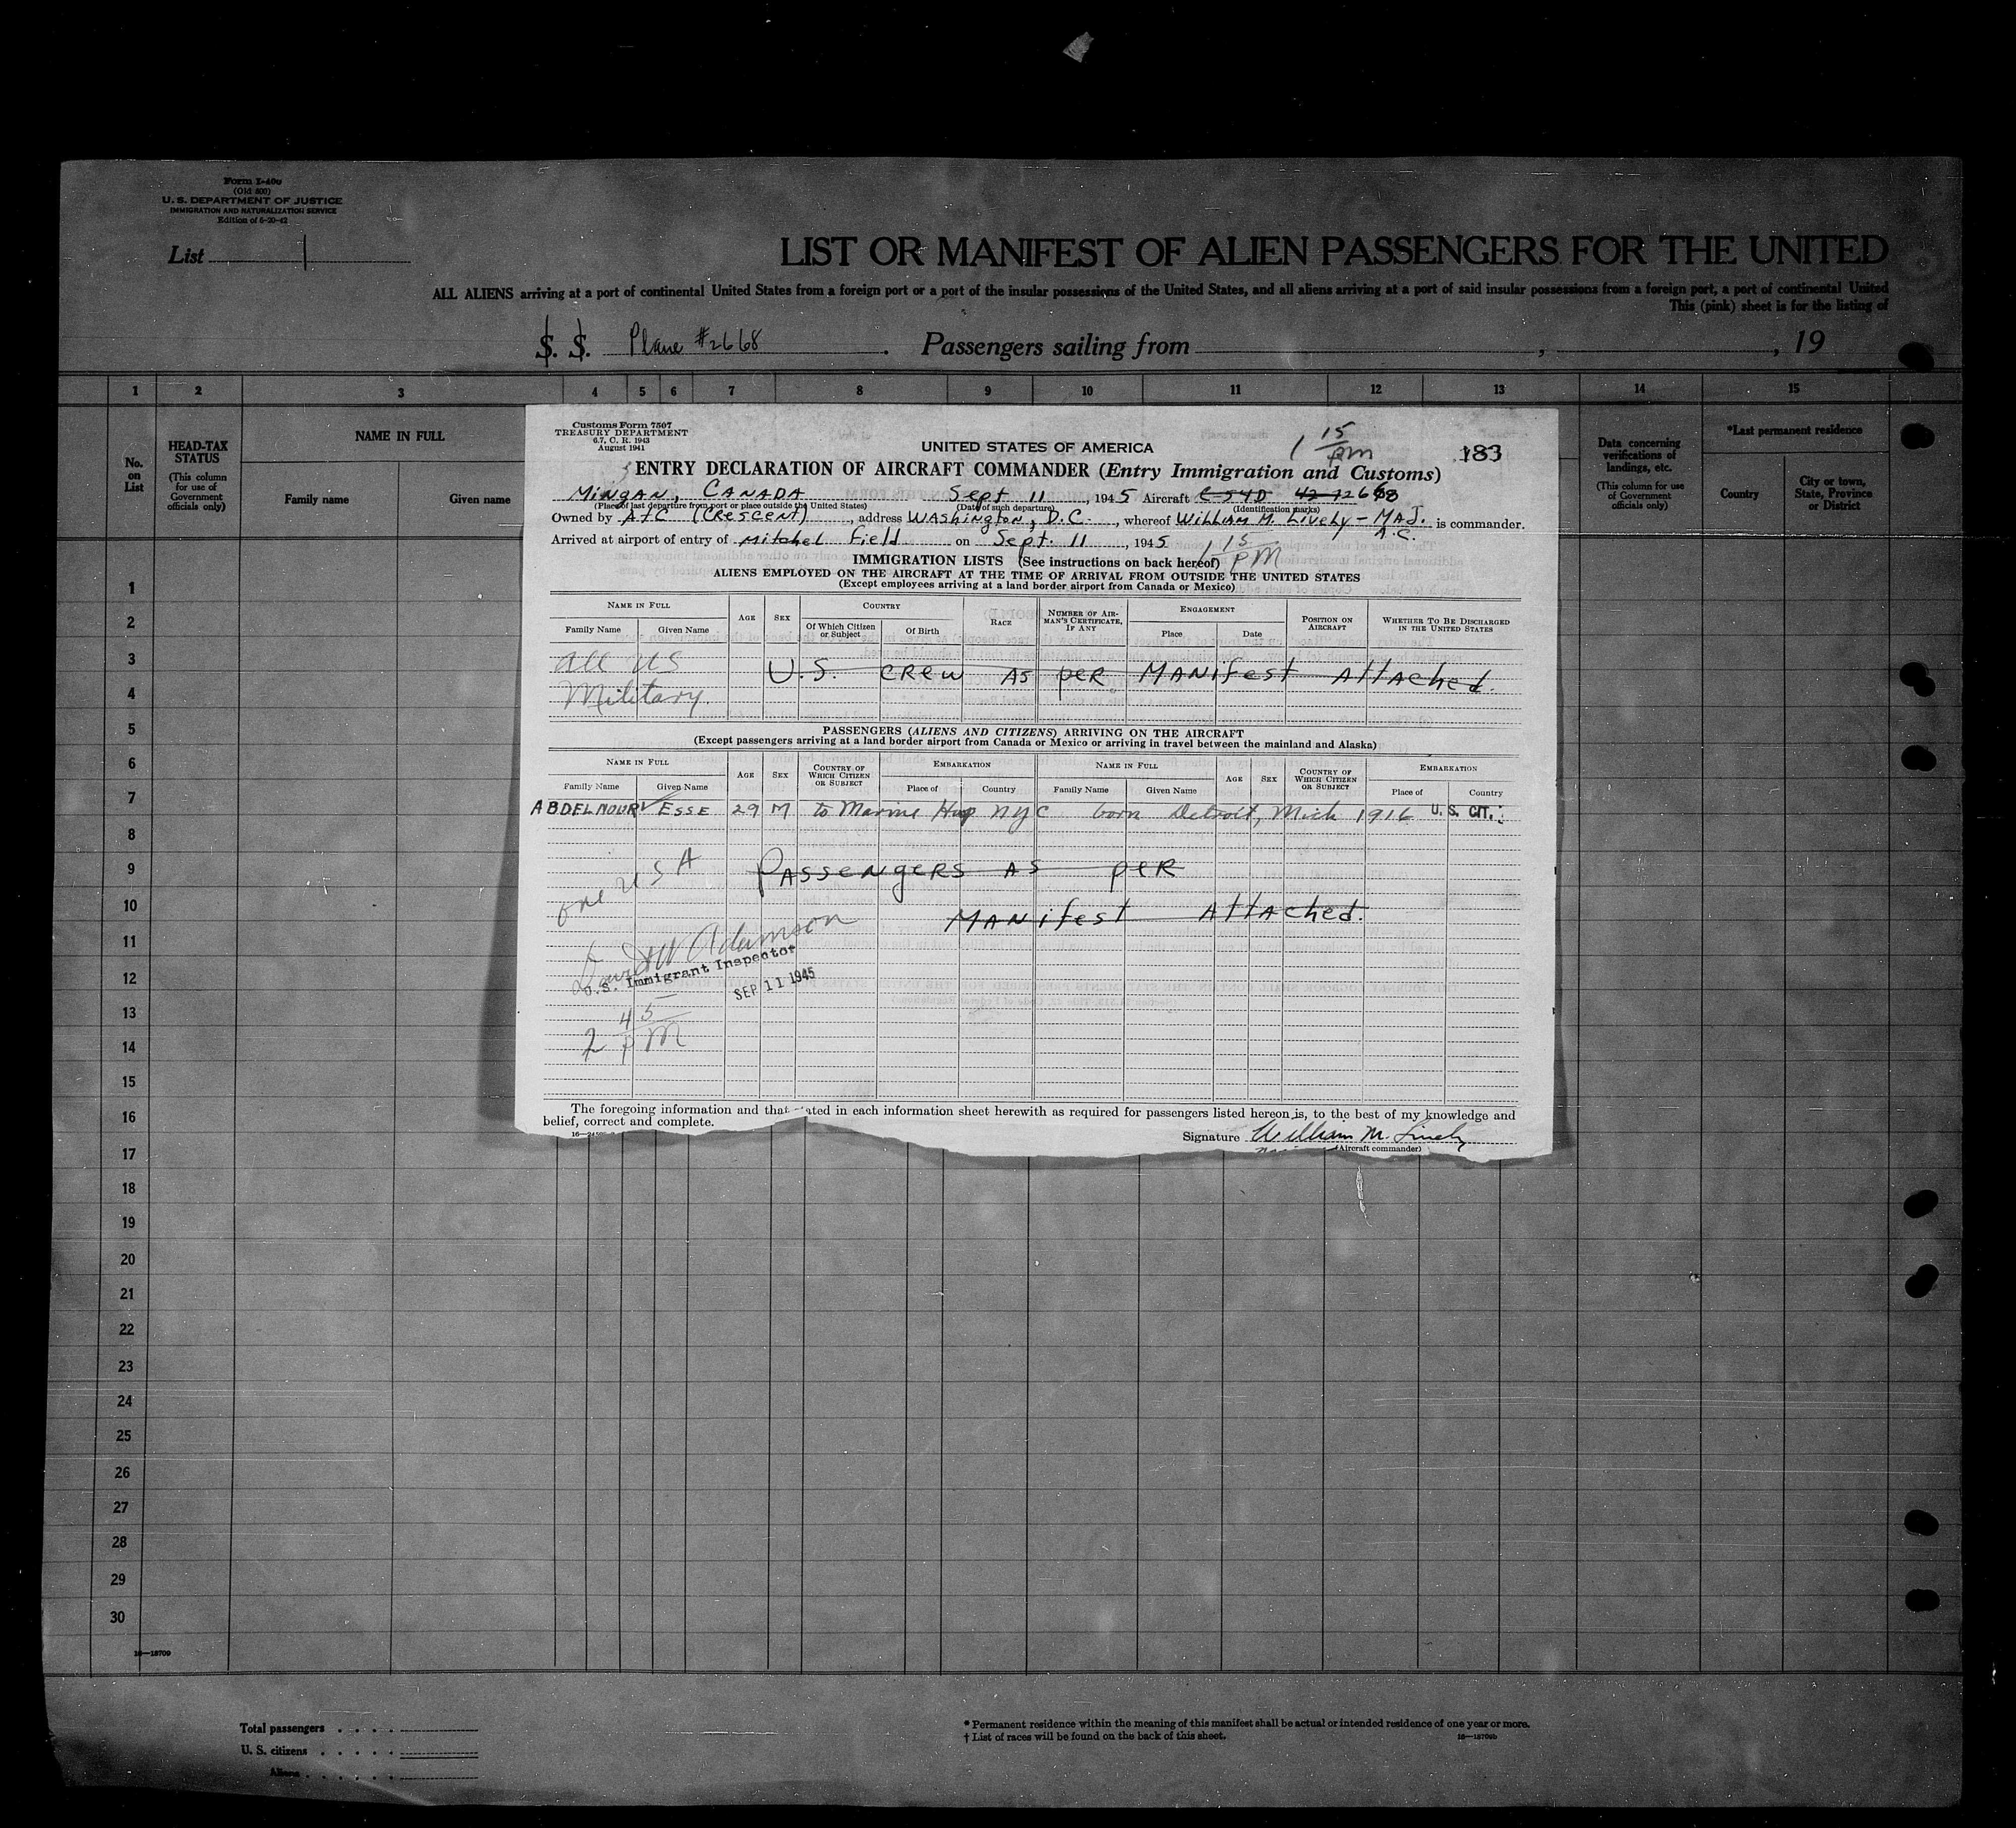 Form I-400
(Old 500)
U. S. DEPARTMENT OF JUSTICE
IMMIGRATION AND NATURALIZATION SERVICE
Edition of 6-20-42
List 1
LIST OR MANIFEST OF ALIEN PASSENGERS FOR THE UNITED
ALL ALIENS arriving at a port of continental United States from a foreign port or a port of the insular possessions of the United States, and all aliens arriving at a port of said insular possessions from a foreign port, a port of continental United
This (pink) sheet is for the listing of
S. S. Plane #2668. Passengers sailing from , , 19
1 2 3 4 5 6 7 8 9 10 11 12 13 14 15
No. on List
HEAD-TAX STATUS
(This column for use of Government officials only)
NAME IN FULL
Family name Given name
Data concerning verifications of landings, etc.
(This column for use of Government officials only)
*Last permanent residence
Country City or town, State, Province or District
Customs Form 7507
TREASURY DEPARTMENT
6.7, C. R. 1943
August 1941
UNITED STATES OF AMERICA
1 15 pm
183
ENTRY DECLARATION OF AIRCRAFT COMMANDER (Entry Immigration and Customs)
Mingan, Canada Sept 11, 1945 Aircraft C-54D 42-72668
(Place of last departure from port or place outside the United States) (Date of such departure) (Identification marks)
Owned by AtC (Crescent), address Washington, D.C., whereof William M. Lively - Maj. is commander.
A.C.
Arrived at airport of entry of Mitchel Field on Sept. 11, 1945
1 15 pm
IMMIGRATION LISTS (See instructions on back hereof)
ALIENS EMPLOYED ON THE AIRCRAFT AT THE TIME OF ARRIVAL FROM OUTSIDE THE UNITED STATES
(Except employees arriving at a land border airport from Canada or Mexico)
NAME IN FULL AGE SEX COUNTRY RACE NUMBER OF AIRMAN'S CERTIFICATE, IF ANY ENGAGEMENT POSITION ON AIRCRAFT WHETHER TO BE DISCHARGED IN THE UNITED STATES
Family Name Given Name Of Which Citizen or Subject Of Birth Place Date
all US
Military
U.S. crew as per Manifest Attached.
PASSENGERS (ALIENS AND CITIZENS) ARRIVING ON THE AIRCRAFT
(Except passengers arriving at a land border airport from Canada or Mexico or arriving in travel between the mainland and Alaska)
NAME IN FULL AGE SEX COUNTRY OF WHICH CITIZEN OR SUBJECT EMBARKATION NAME IN FULL AGE SEX COUNTRY OF WHICH CITIZEN OR SUBJECT EMBARKATION
Family Name Given Name Place of Country Family Name Given Name Place of Country
ABDELNOUR ESSE 29 M to Marine Hosp NYC born Detroit, Mich 1916 U. S. CIT.
one USA
Passengers as per
Manifest Attached.
David W Adamson
U.S. Immigrant Inspector
SEP 11 1945
2 45 pM
The foregoing information and that stated in each information sheet herewith as required for passengers listed hereon is, to the best of my knowledge and
belief, correct and complete.
Signature William M. Lively
(Aircraft commander)
1
2
3
4
5
6
7
8
9
10
11
12
13
14
15
16
17
18
19
20
21
22
23
24
25
26
27
28
29
30
16—18709
Total passengers
U. S. citizens
Aliens
* Permanent residence within the meaning of this manifest shall be actual or intended residence of one year or more.
† List of races will be found on the back of this sheet.
16—18709b